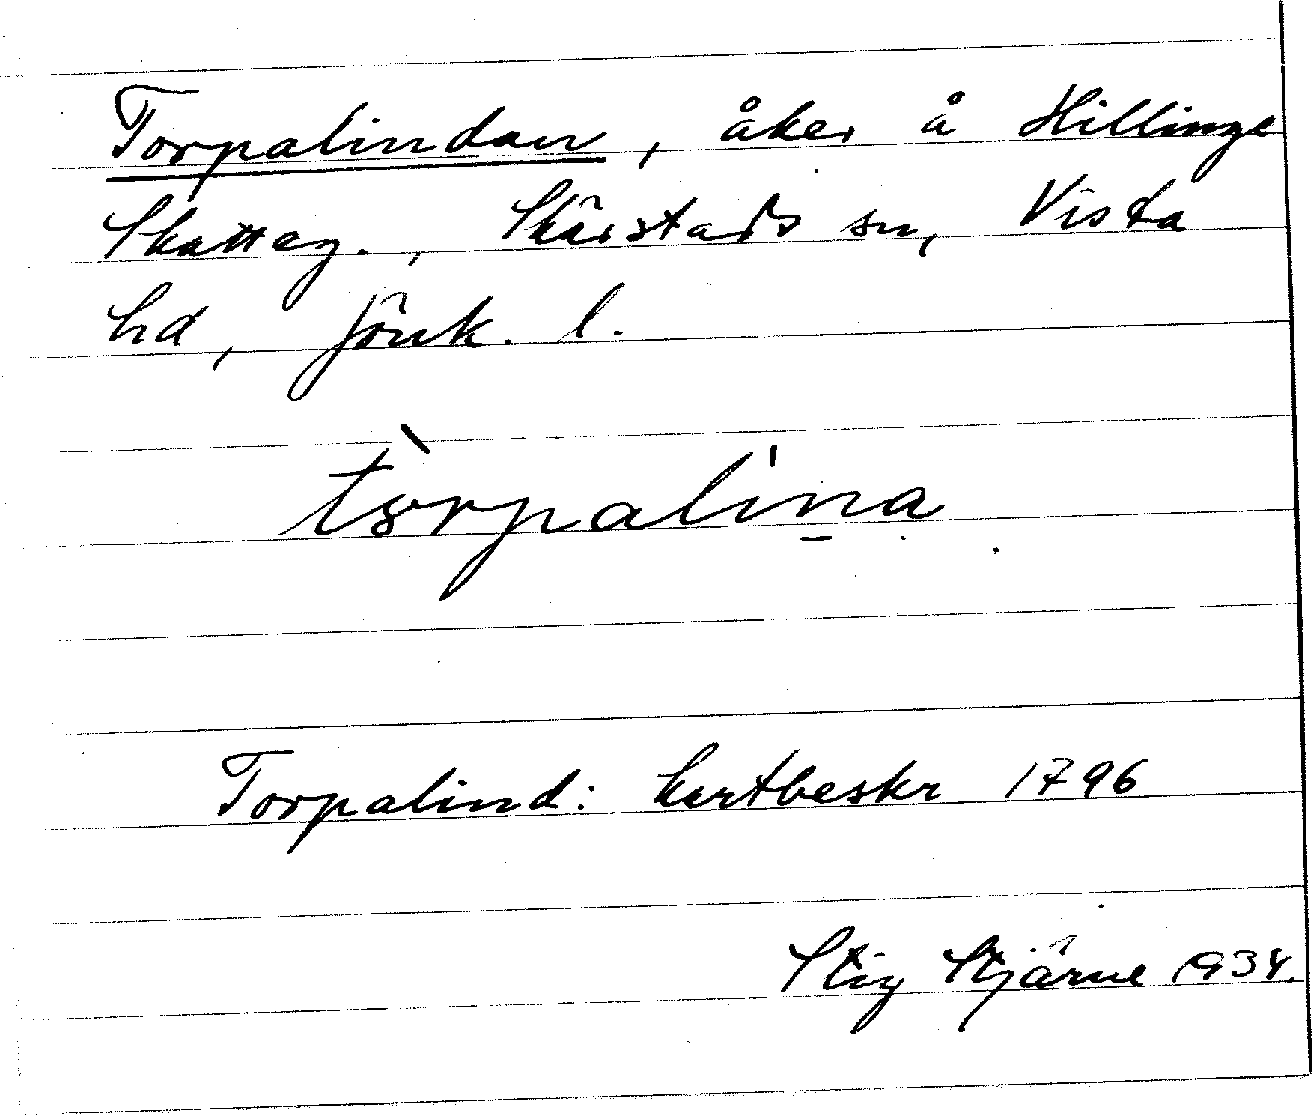 Torpalindan, åker å Hillinge
Skatteg., Skärstads sn, Vista
hd, Jönk. l.
tòrpalina
Torpalind: kartbeskr 1796
Stig Stjärne 1934.